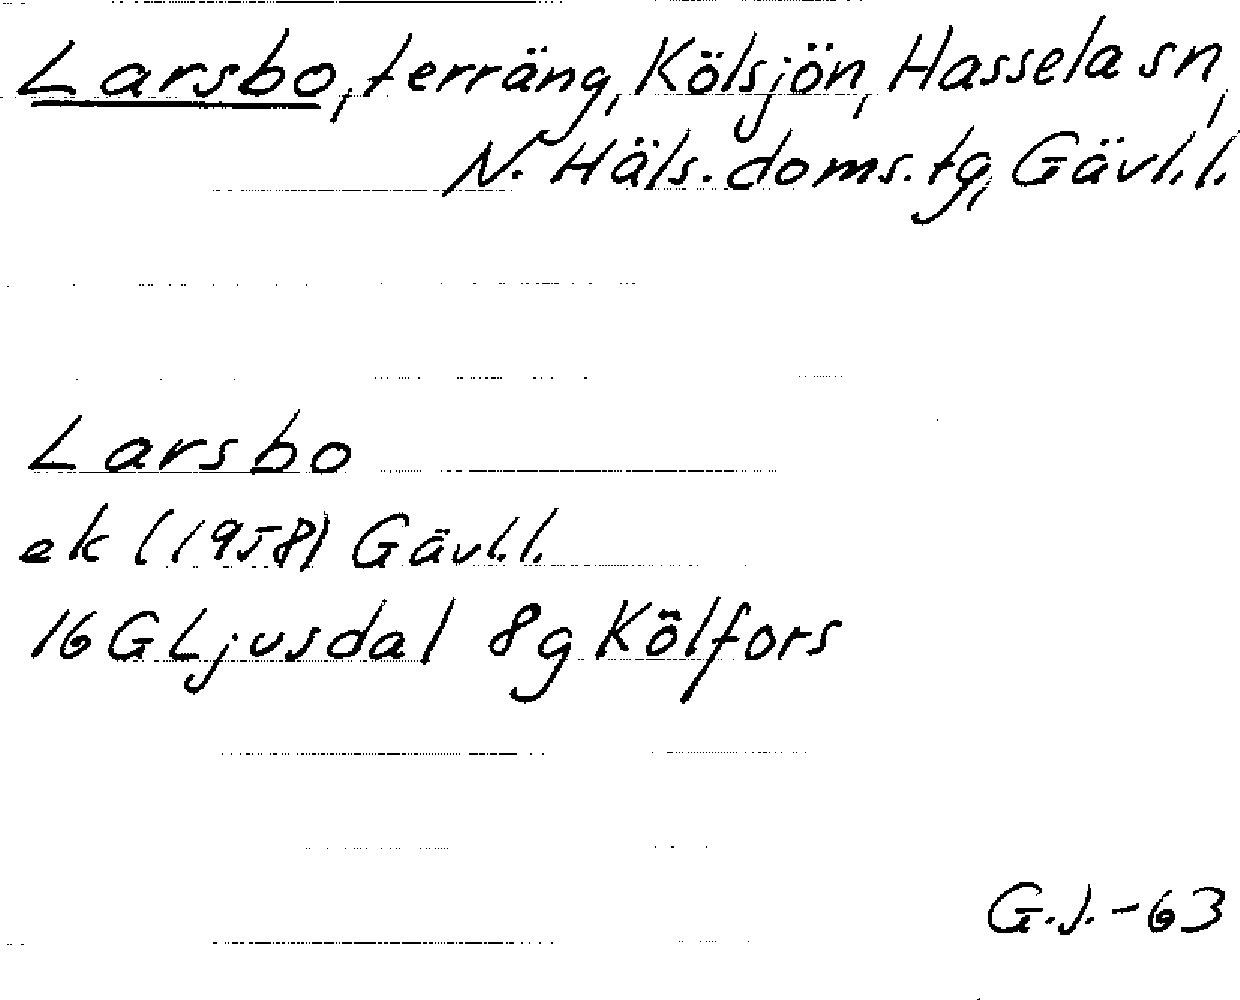 Larsbo, terräng, Kölsjön, Hassela sn,
N. Häls. doms. tg, Gävl.l.
Larsbo
ek (1958) Gävl.l.
16G Ljusdal 8g Kölfors
G.J.-63